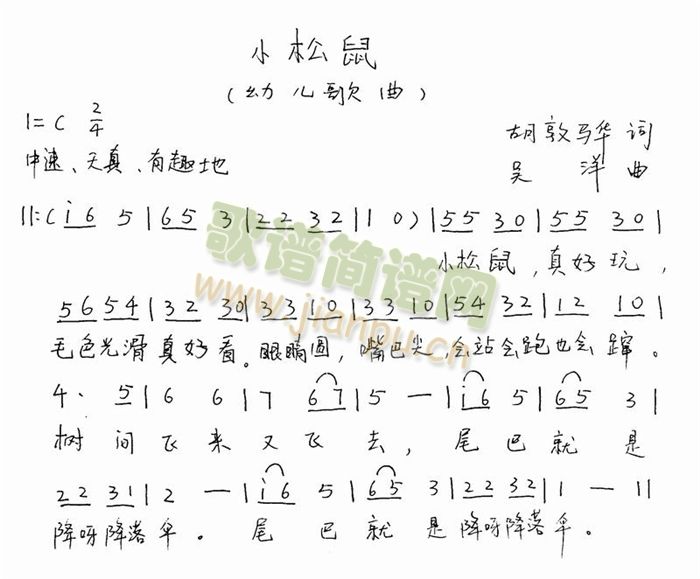 小松鼠
(幼儿歌曲)
1=C 2/4
胡敦马华 词
中速、天真、有趣地
吴 洋 曲
||:(i6 5|65 3|22 32|1 0)|55 30|55 30|
小松鼠,真好玩,
5654|32 30|33 10|33 10|54 32|12 10|
毛色光滑真好看。眼睛圆,嘴巴尖,会站会跑也会蹿。
4· 5|6 6|7 67|5 —|i6 5|65 3|
树间飞来又飞去,尾巴就是
22 31|2 —|i6 5|65 3|22 32|1 — ||
降呀降落伞。尾巴就是降呀降落伞。
歌谱简谱网
www.jianpu.cn